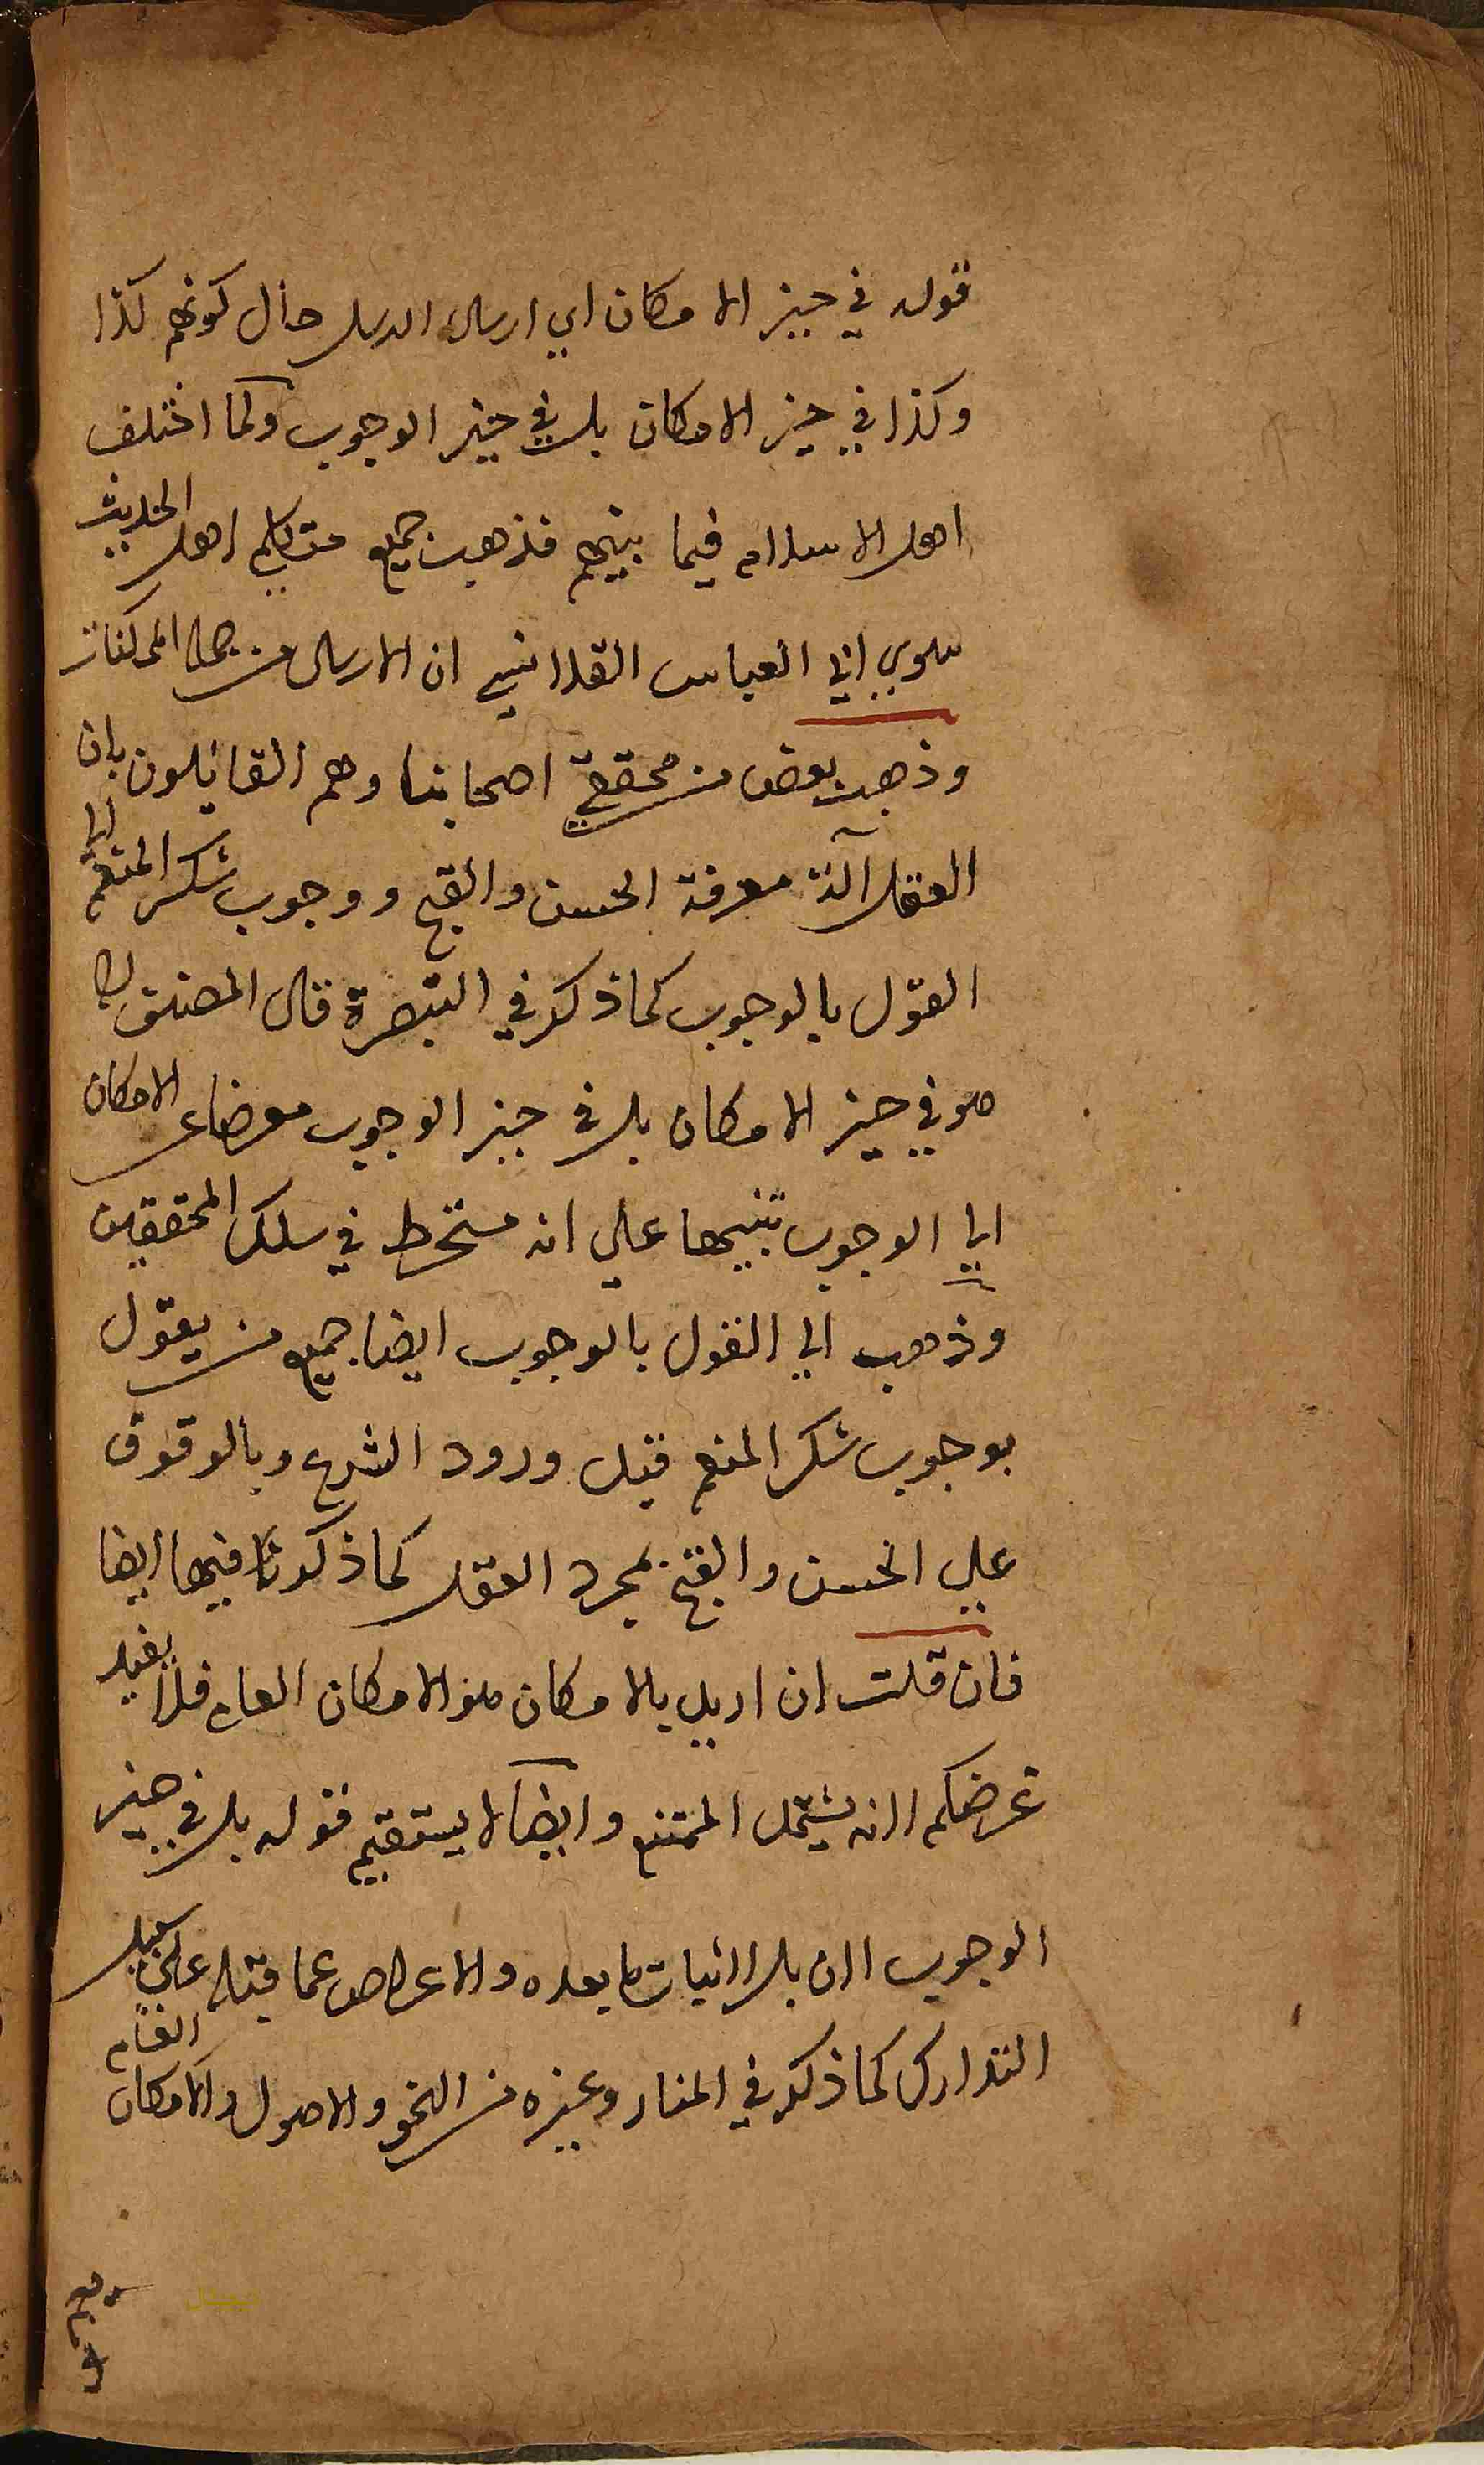 قوله في حيز الامكان اي ارسال الرسل حال كونهم كذا
وكذا في حيز الامكان بل في حيز الوجوب ولما اختلف
اهل الاسلام فيما بينهم فذهبت جميع متكلم اهل الحديث
سوي ابي العباس القلانسي ان الارسال من جملة الممكنات
وذهبت بعض من محققي اصحابنا وهم القايلون بان
العقل آلة معرفة الحسن والقبح ووجوب شكر المنعم الي
القول بالوجوب كما ذكر في التبصرة قال المصنف
هو في حيز الامكان بل في حيز الوجوب معرضا عن الامكان
الي الوجوب تنبيها علي انه منخرط في سلك المحققين
وذهب الي القول بالوجوب ايضا جميع من يقول
بوجوب شكر المنعم قبل ورود الشرع وبالوقوف
علي الحسن والقبح بمجرد العقل كما ذكرنا فيها ايضا
فان قلت ان اريد بالامكان هو الامكان العام فلا يفيد
غرضكم لانه يشتمل الممتنع وايضا لا يستقيم قوله بل في حيز
الوجوب لان بل لاثبات ما بعده والاعراض عما قبله علي سبيل
التدارك كما ذكر في المنار وغيره من النحو والاصول والامكان العام